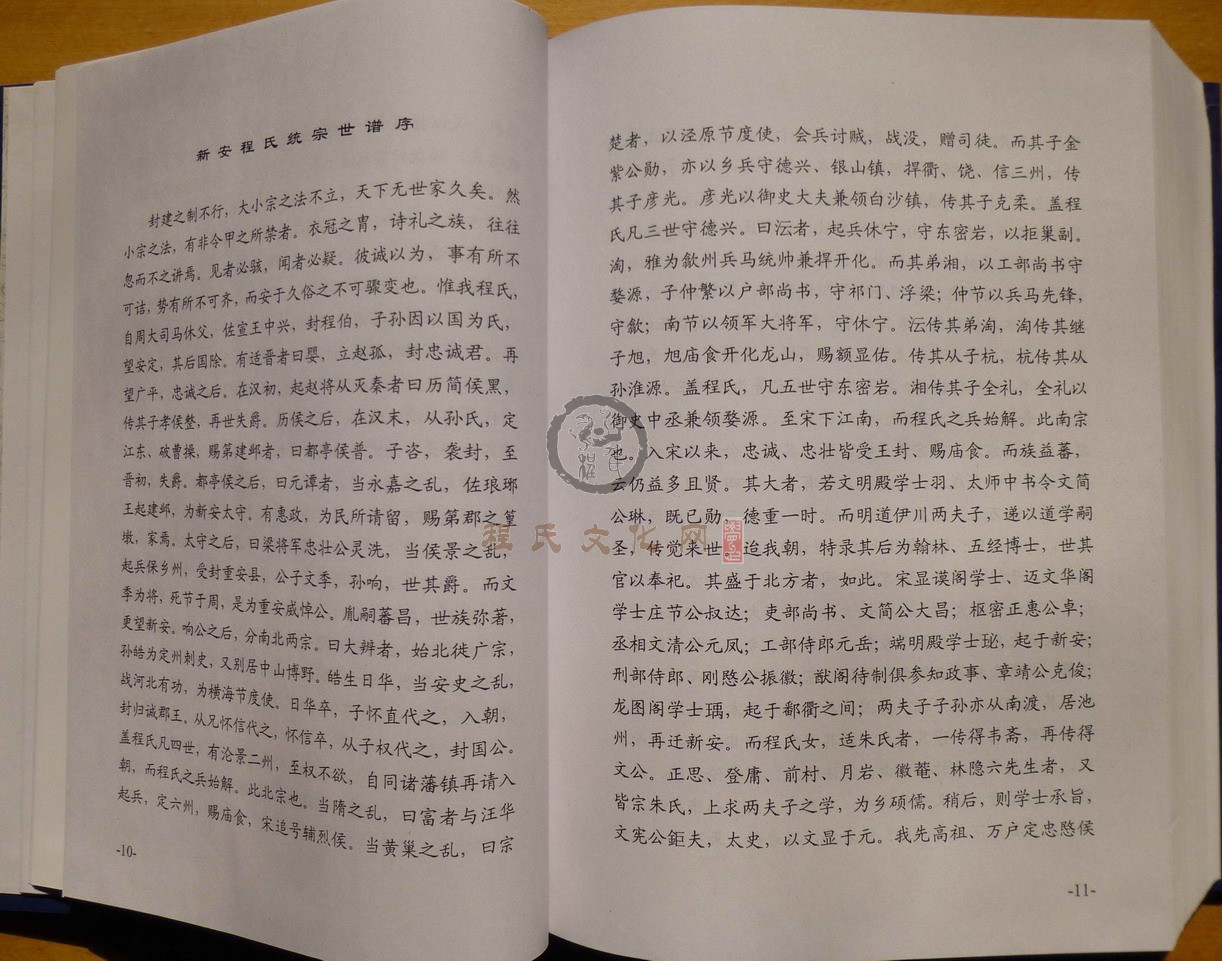 新安程氏统宗世谱序
封建之制不行，大小宗之法不立，天下无世家久矣。然
小宗之法，有非令甲之所禁者。衣冠之胄，诗礼之族，往往
忽而不之讲焉。见者必骇，闻者必疑。彼诚以为，事有所不
可诘，势有所不可齐，而安于久俗之不可骤变也。惟我程氏，
自周大司马休父，佐宣王中兴，封程伯，子孙因以国为氏，
望安定，其后国除。有适晋者曰婴，立赵孤，封忠诚君。再
望广平，忠诚之后，在汉初，起赵将从灭秦者曰历简侯黑，
传其子孝侯整，再世失爵。历侯之后，在汉末，从孙氏，定
江东、破曹操，赐第建邺者，曰都亭侯普。子咨，袭封，至
晋初，失爵。都亭侯之后，曰元谭者，当永嘉之乱，佐琅琊
王起建邺，为新安太守。有惠政，为民所请留，赐第郡之篁
墩，家焉。太守之后，曰梁将军忠壮公灵洗，当侯景之乱，
起兵保乡州，受封重安县，公子文季，孙响，世其爵。而文
季为将，死节于周，是为重安威悼公。胤嗣蕃昌，世族弥著，
更望新安。响公之后，分南北两宗。曰大辨者，始北徙广宗，
孙皓为定州刺史，又别居中山博野。皓生日华，当安史之乱，
战河北有功，为横海节度使。日华卒，子怀直代之，入朝，
封归诚郡王。从兄怀信代之，怀信卒，从子权代之，封国公。
盖程氏凡四世，有沧景二州，至权不欲，自同诸藩镇再请入
朝，而程氏之兵始解。此北宗也。当隋之乱，曰富者与汪华
起兵，定六州，赐庙食，宋追号辅烈侯。当黄巢之乱，曰宗
-10-
楚者，以泾原节度使，会兵讨贼，战没，赠司徒。而其子金
紫公勋，亦以乡兵守德兴、银山镇，捍衢、饶、信三州，传
其子彦光。彦光以御史大夫兼领白沙镇，传其子克柔。盖程
氏凡三世守德兴。曰沄者，起兵休宁，守东密岩，以拒巢副。
淘，雅为歙州兵马统帅兼捍开化。而其弟湘，以工部尚书守
婺源，子仲繁以户部尚书，守祁门、浮梁；仲节以兵马先锋，
守歙；南节以领军大将军，守休宁。沄传其弟淘，淘传其继
子旭，旭庙食开化龙山，赐额显佑。传其从子杭，杭传其从
孙淮源。盖程氏，凡五世守东密岩。湘传其子全礼，全礼以
御史中丞兼领婺源。至宋下江南，而程氏之兵始解。此南宗
也。入宋以来，忠诚、忠壮皆受王封、赐庙食。而族益蕃，
云仍益多且贤。其大者，若文明殿学士羽、太师中书令文简
公琳，既已勋、德重一时。而明道伊川两夫子，递以道学嗣
圣，传觉来世，迨我朝，特录其后为翰林、五经博士，世其
官以奉祀。其盛于北方者，如此。宋显谟阁学士、迈文华阁
学士庄节公叔达；吏部尚书、文简公大昌；枢密正惠公卓；
丞相文清公元凤；工部侍郎元岳；端明殿学士珌，起于新安；
刑部侍郎、刚愍公振徽；猷阁待制俱参知政事、章靖公克俊；
龙图阁学士瑀，起于鄱衢之间；两夫子子孙亦从南渡，居池
州，再迁新安。而程氏女，适朱氏者，一传得韦斋，再传得
文公。正思、登庸、前村、月岩、徽菴、林隐六先生者，又
皆宗朱氏，上求两夫子之学，为乡硕儒。稍后，则学士承旨，
文宪公鉅夫，太史，以文显于元。我先高祖、万户定忠愍侯
-11-
程氏文化网